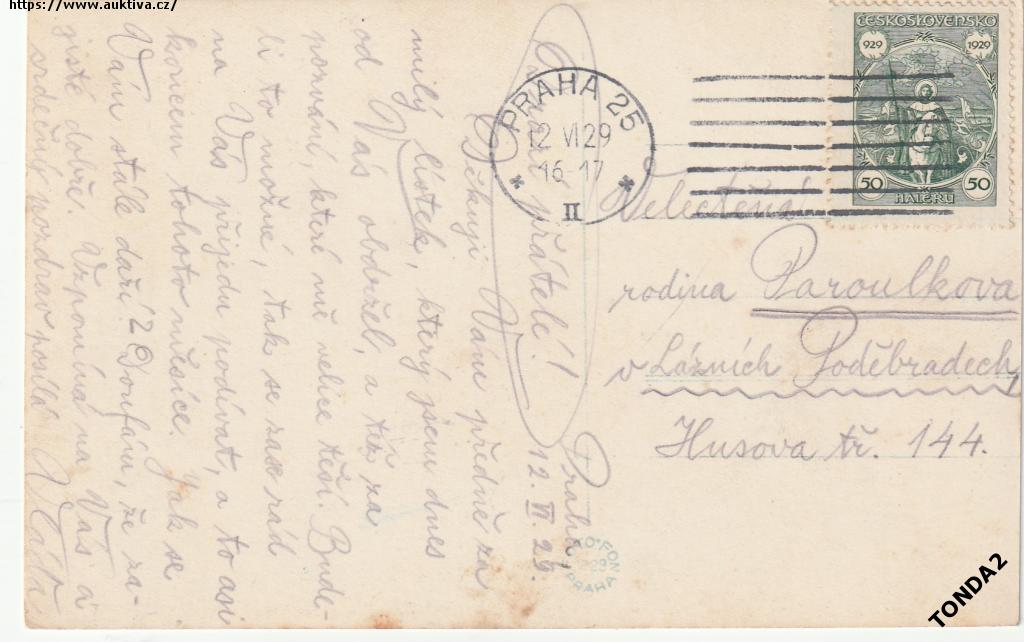 https://www.auktiva.cz/
ČESKOSLOVENSKO
929 1929
50 50
HALÉŘŮ
PRAHA 25
12 VI 29
16-17
II
Velectěná
rodina Paroulkova
v Lázních Poděbradech,
Husova tř. 144.
Praha,
12. VI. 29.
přátelé!
Děkuji Vám předně za
milý lístek, který jsem dnes
od Vás obdržel, a též za
pozvání, které mě velice těší. Bude-
li to možné, tak se zase rád
na Vás přijedu podívat, a to asi
koncem tohoto měsíce. Jak se
Vám stále daří? Doufám, že za-
jisté dobře. Vzpomíná na Vás a
srdečný pozdrav posílá Vláďa
FON
29
PRAHA
TONDA2